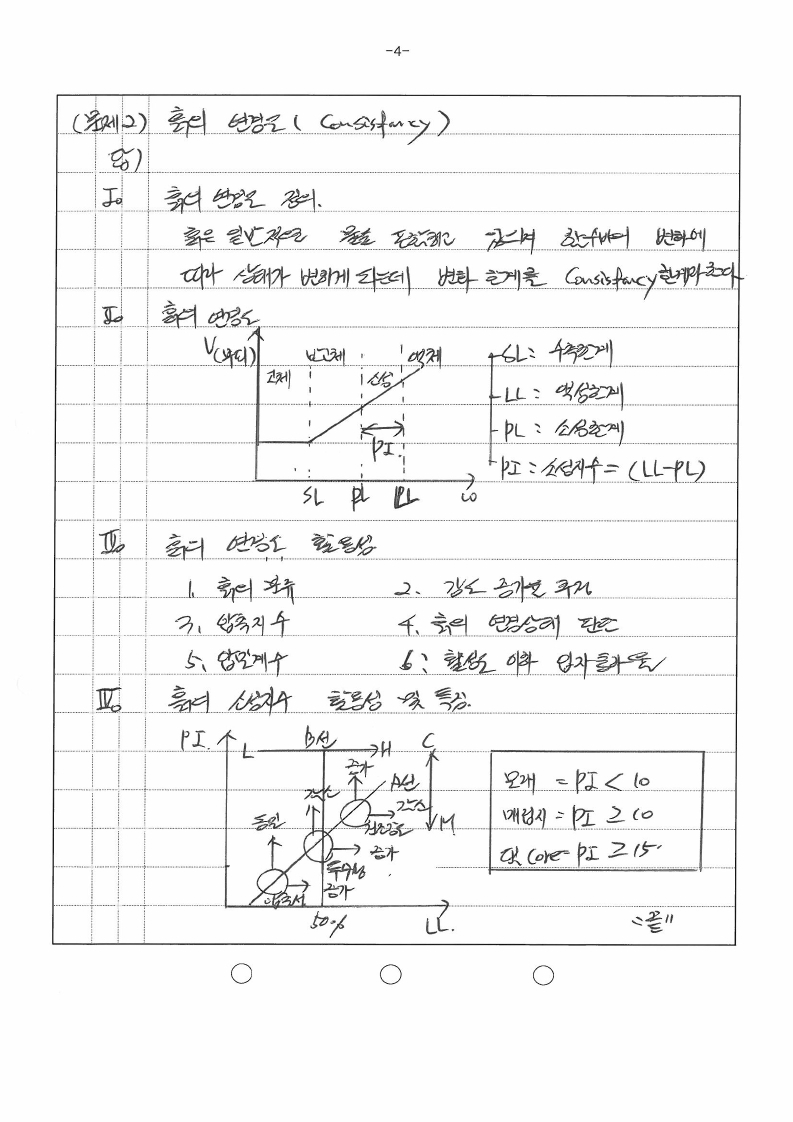 -4-
(문제2) 흙의 연경도 ( Consisfancy )
답)
I. 흙의 연경도 정의.
흙은 일반적으로 물을 포함하고 있으며 함수비의 변화에
따라 상태가 변하게 되는데 변화 한계를 Consisfancy 한계라 한다
II. 흙의 연경도
V(부피) 반고체 액체
고체 소성
PI.
SL PL LL ω
SL : 수축한계
LL : 액성한계
PL : 소성한계
PI : 소성지수 = (LL-PL)
III. 흙의 연경도 활용성
1. 흙의 분류 2. 강도 증가율 추정
3. 압축지수 4. 흙의 연경상태 판단
5. 압밀계수 6. 활성도
IV. 흙의 소성지수 활용성 및 특징.
PI. L B선 H C
증가 A선
감소 감소
동일 건조강도 M
증가
투수성
압축성 증가
50% LL.
모래 = PI < 10
매립지 = PI ≥ 10
Core PI ≥ 15
"끝"